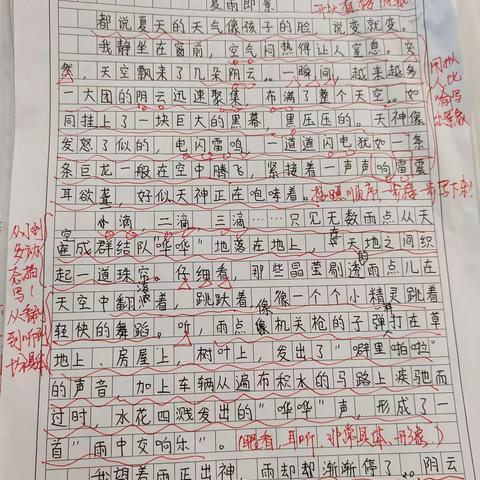 夏雨即景
都说夏天的天气像孩子的脸，说变就变。
我静坐在窗前，空气闷热得让人窒息。突
然，天空飘来了几朵阴云。一瞬间，越来越多
一大团的阴云迅速聚集，布满了整个天空。如
同挂上了一块巨大的黑幕，黑压压的。天神像
发怒了似的，电闪雷鸣，一道道闪电犹如一条
条巨龙一般在空中腾飞，紧接着一声声响雷震
耳欲聋，好似天神正在咆哮着。
一滴，二滴，三滴……只见无数雨点从天
空成群结队"哗哗"地落在地上，在天地之间织
起一道珠帘。仔细看，那些晶莹剔透的雨点儿在
天空中翻滚着，跳跃着，像一个个小精灵跳着
轻快的舞蹈。听，雨点像机关枪的子弹打在草
地上，房屋上，树叶上，发出了"噼里啪啦"
的声音，加上车辆从遍布积水的马路上疾驰而
过时，水花四溅发出的"哗哗"声，形成了一
首"雨中交响乐"。(眼看，耳听，非常具体、形象)
我望着雨正出神，雨却却渐渐停了。阴云